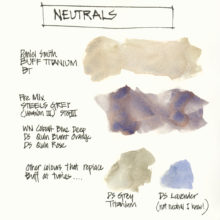 NEUTRALS
Daniel Smith
BUFF TITANIUM
BT
Pre Mix
STEELS GREY
(Version II) StGII
WN Cobalt Blue Deep
DS Quin Burnt Orange
DS Quin Rose
Other colours that replace
Buff at times....
DS Grey
Titanium
DS Lavender
(not neutral I know!)